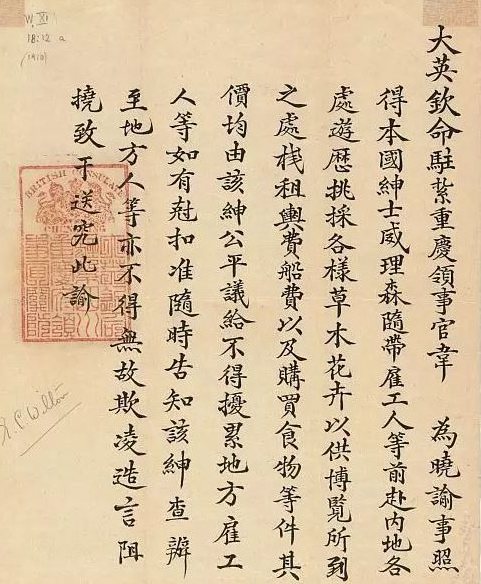 大英欽命駐紮重慶領事官韋　為曉諭事照
得本國紳士威理森隨帶雇工人等前赴內地各
處遊歷挑採各樣草木花卉以供博覽所到
之處栈租輿費船費以及購買食物等件其
價均由該紳公平議給不得擾累地方雇工
人等如有尅扣准隨時告知該紳查辦
至地方人等亦不得無故欺凌造言阻
撓致干送究此諭
W. XI
18:12 a
(1910)
BRITISH CONSULATE